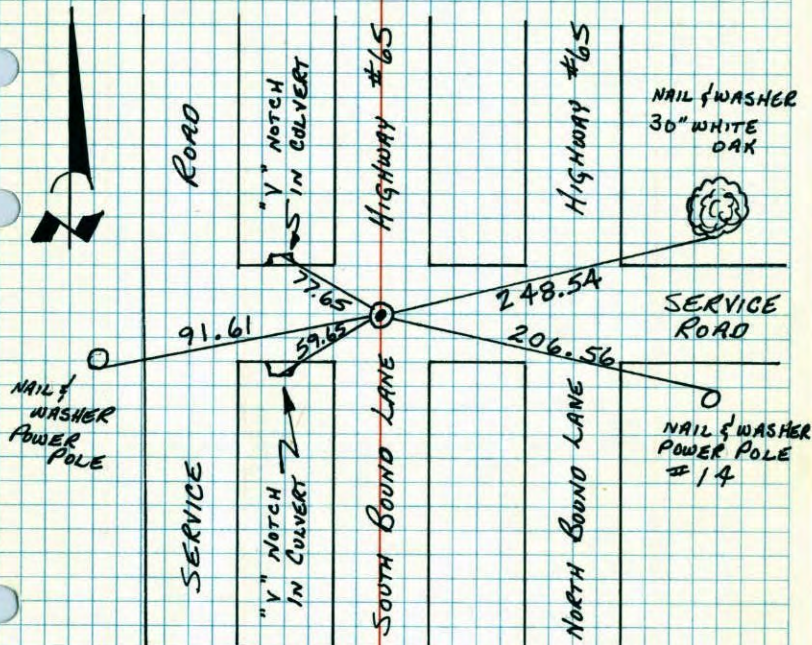 ROAD
"V" NOTCH
IN CULVERT
HIGHWAY #65
HIGHWAY #65
NAIL & WASHER
30" WHITE
OAK
77.65
248.54
SERVICE
ROAD
91.61
59.65
206.56
NAIL &
WASHER
POWER
POLE
NAIL & WASHER
POWER POLE
#14
SERVICE
"V" NOTCH
IN CULVERT
SOUTH BOUND LANE
NORTH BOUND LANE